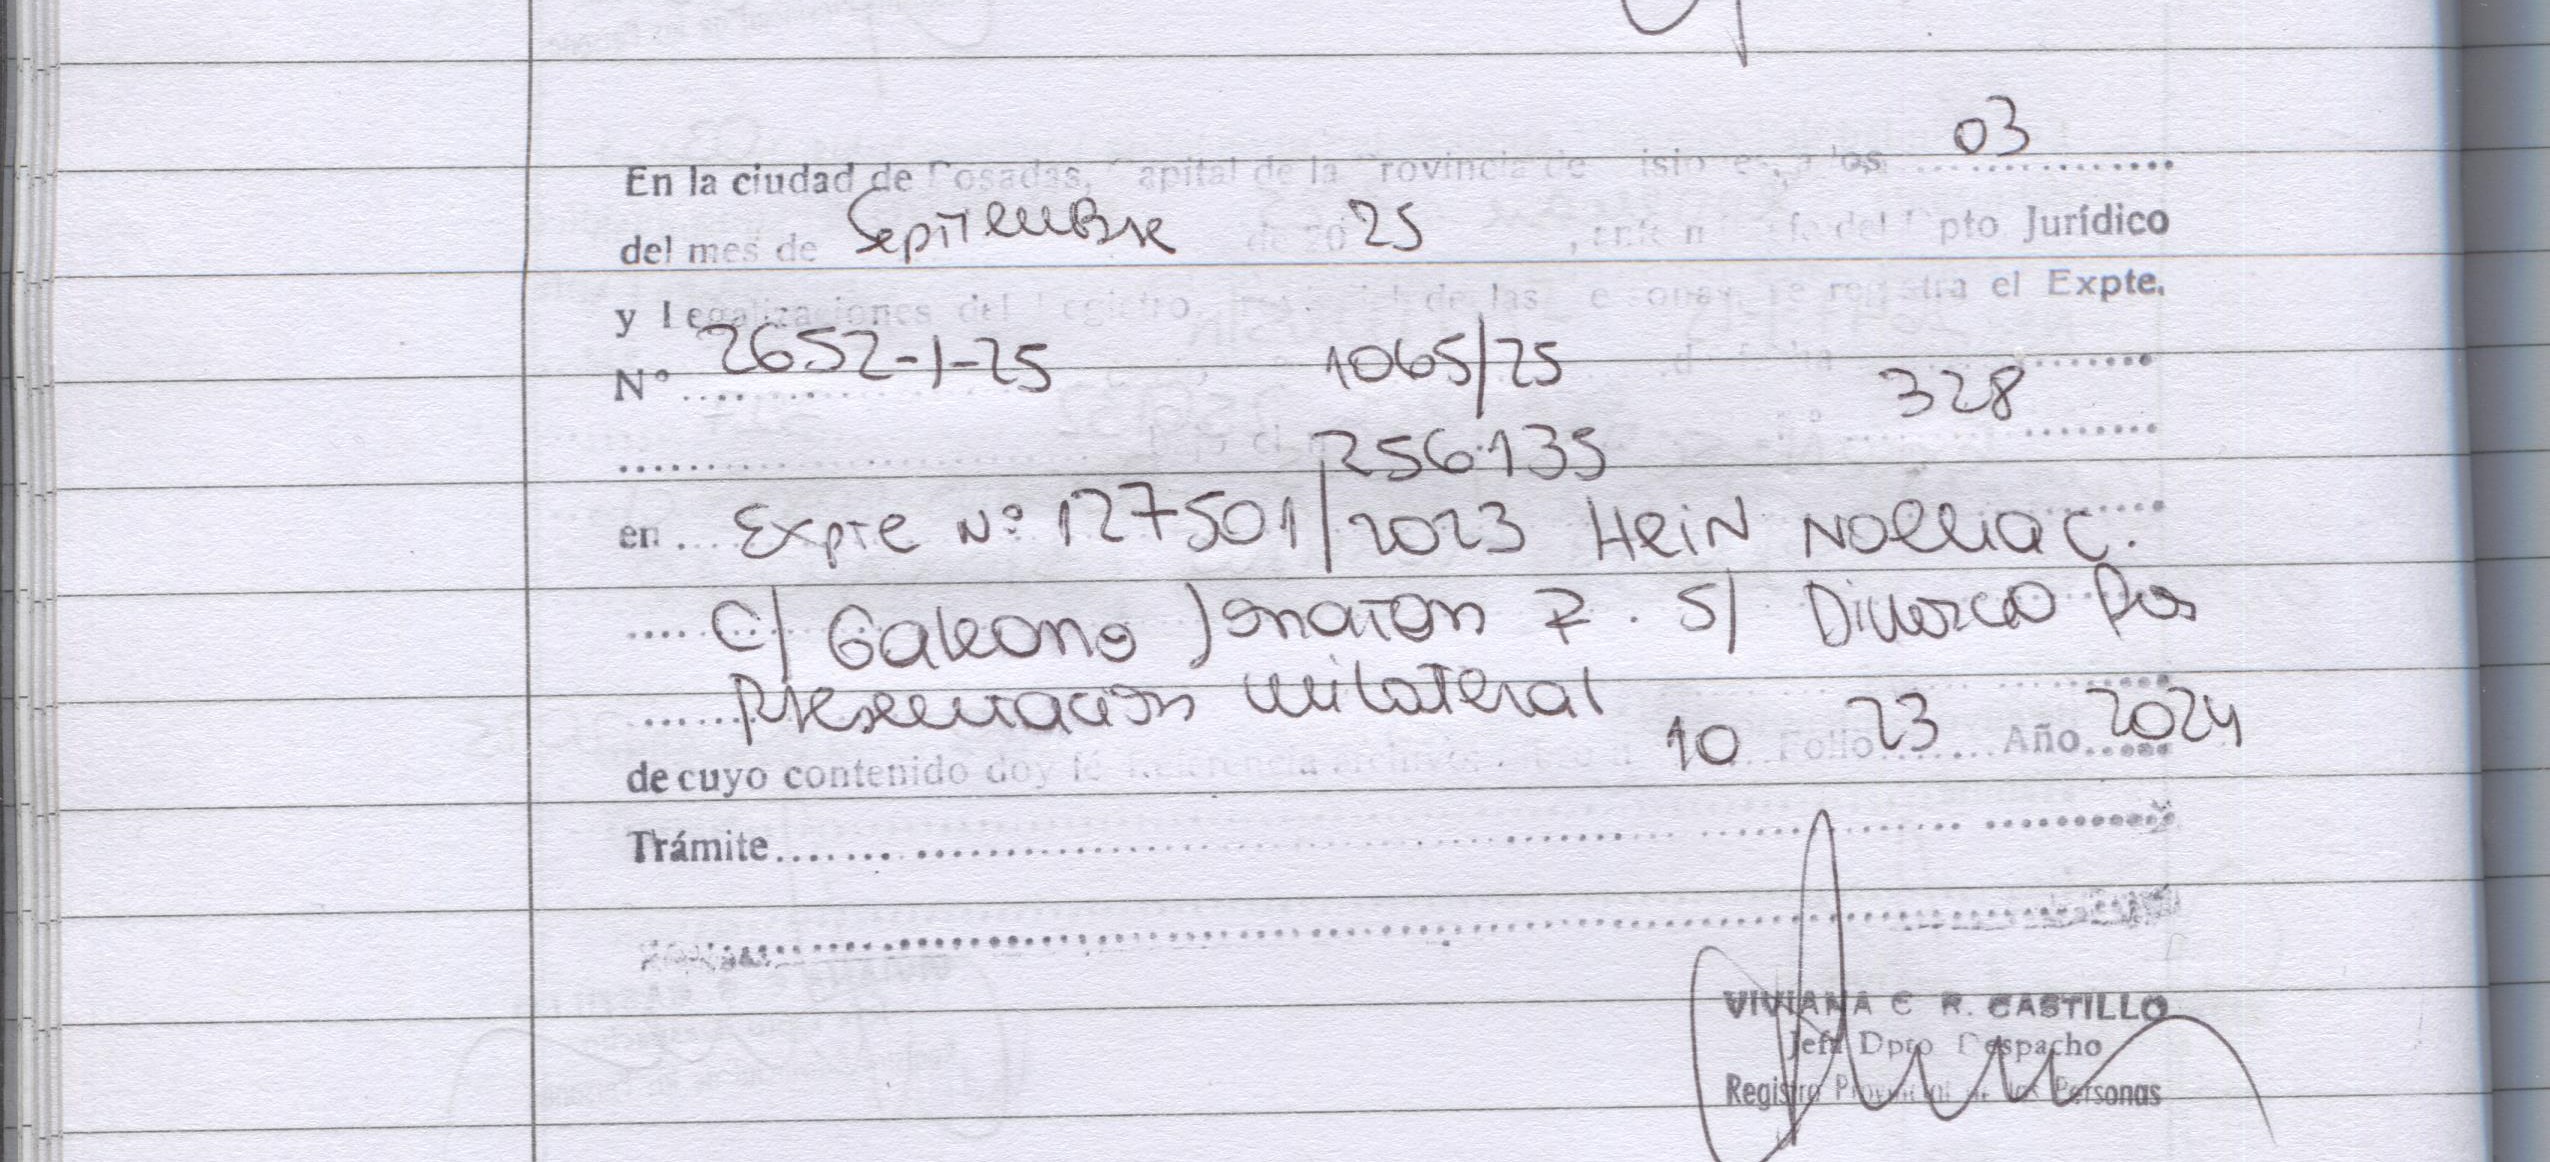 03
En la ciudad de Posadas, Capital de la Provincia de Misiones, a los
del mes de Septiembre de 20 25, ante mi Jefe del Dpto Jurídico
y Legalizaciones del Registro Provincial de las Personas, se registra el Expte.
N° 2652-1-25 1065/25
328
256135
en Expte Nº 127501/2023 Hein Noelia C.
C/ Galeano Jonatan R. S/ Divorcio Por
Presentacion Unilateral
de cuyo contenido doy fé Referencia archivos 10 Folio 23 Año 2024
Trámite
VIVIANA C R. CASTILLO
Jefa Dpto Despacho
Registro Provincial de las Personas